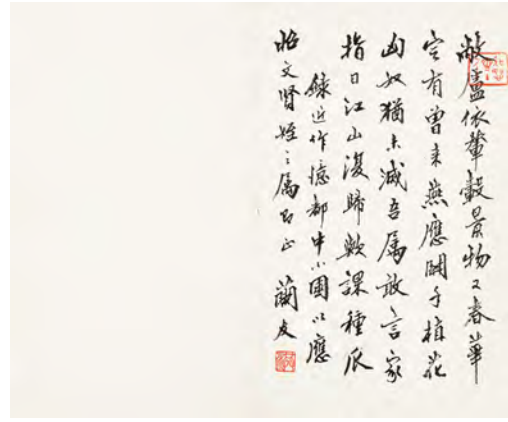 敝廬依輦轂景物又春華
定有曾来燕應開手植花
匈奴猶未滅吾属敢言家
指日江山復歸歟課種瓜
錄近作憶都中小園以應
文賢姪之属即正 蘭友